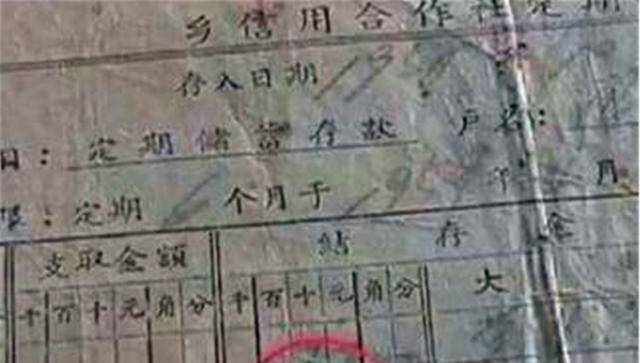 乡信用合作社定期
存入日期 195
目：定期储蓄存款 户名：
限：定期 6 个月于 195 年 月
支取金额 结存金
千百十元角分 千百十元角分 大